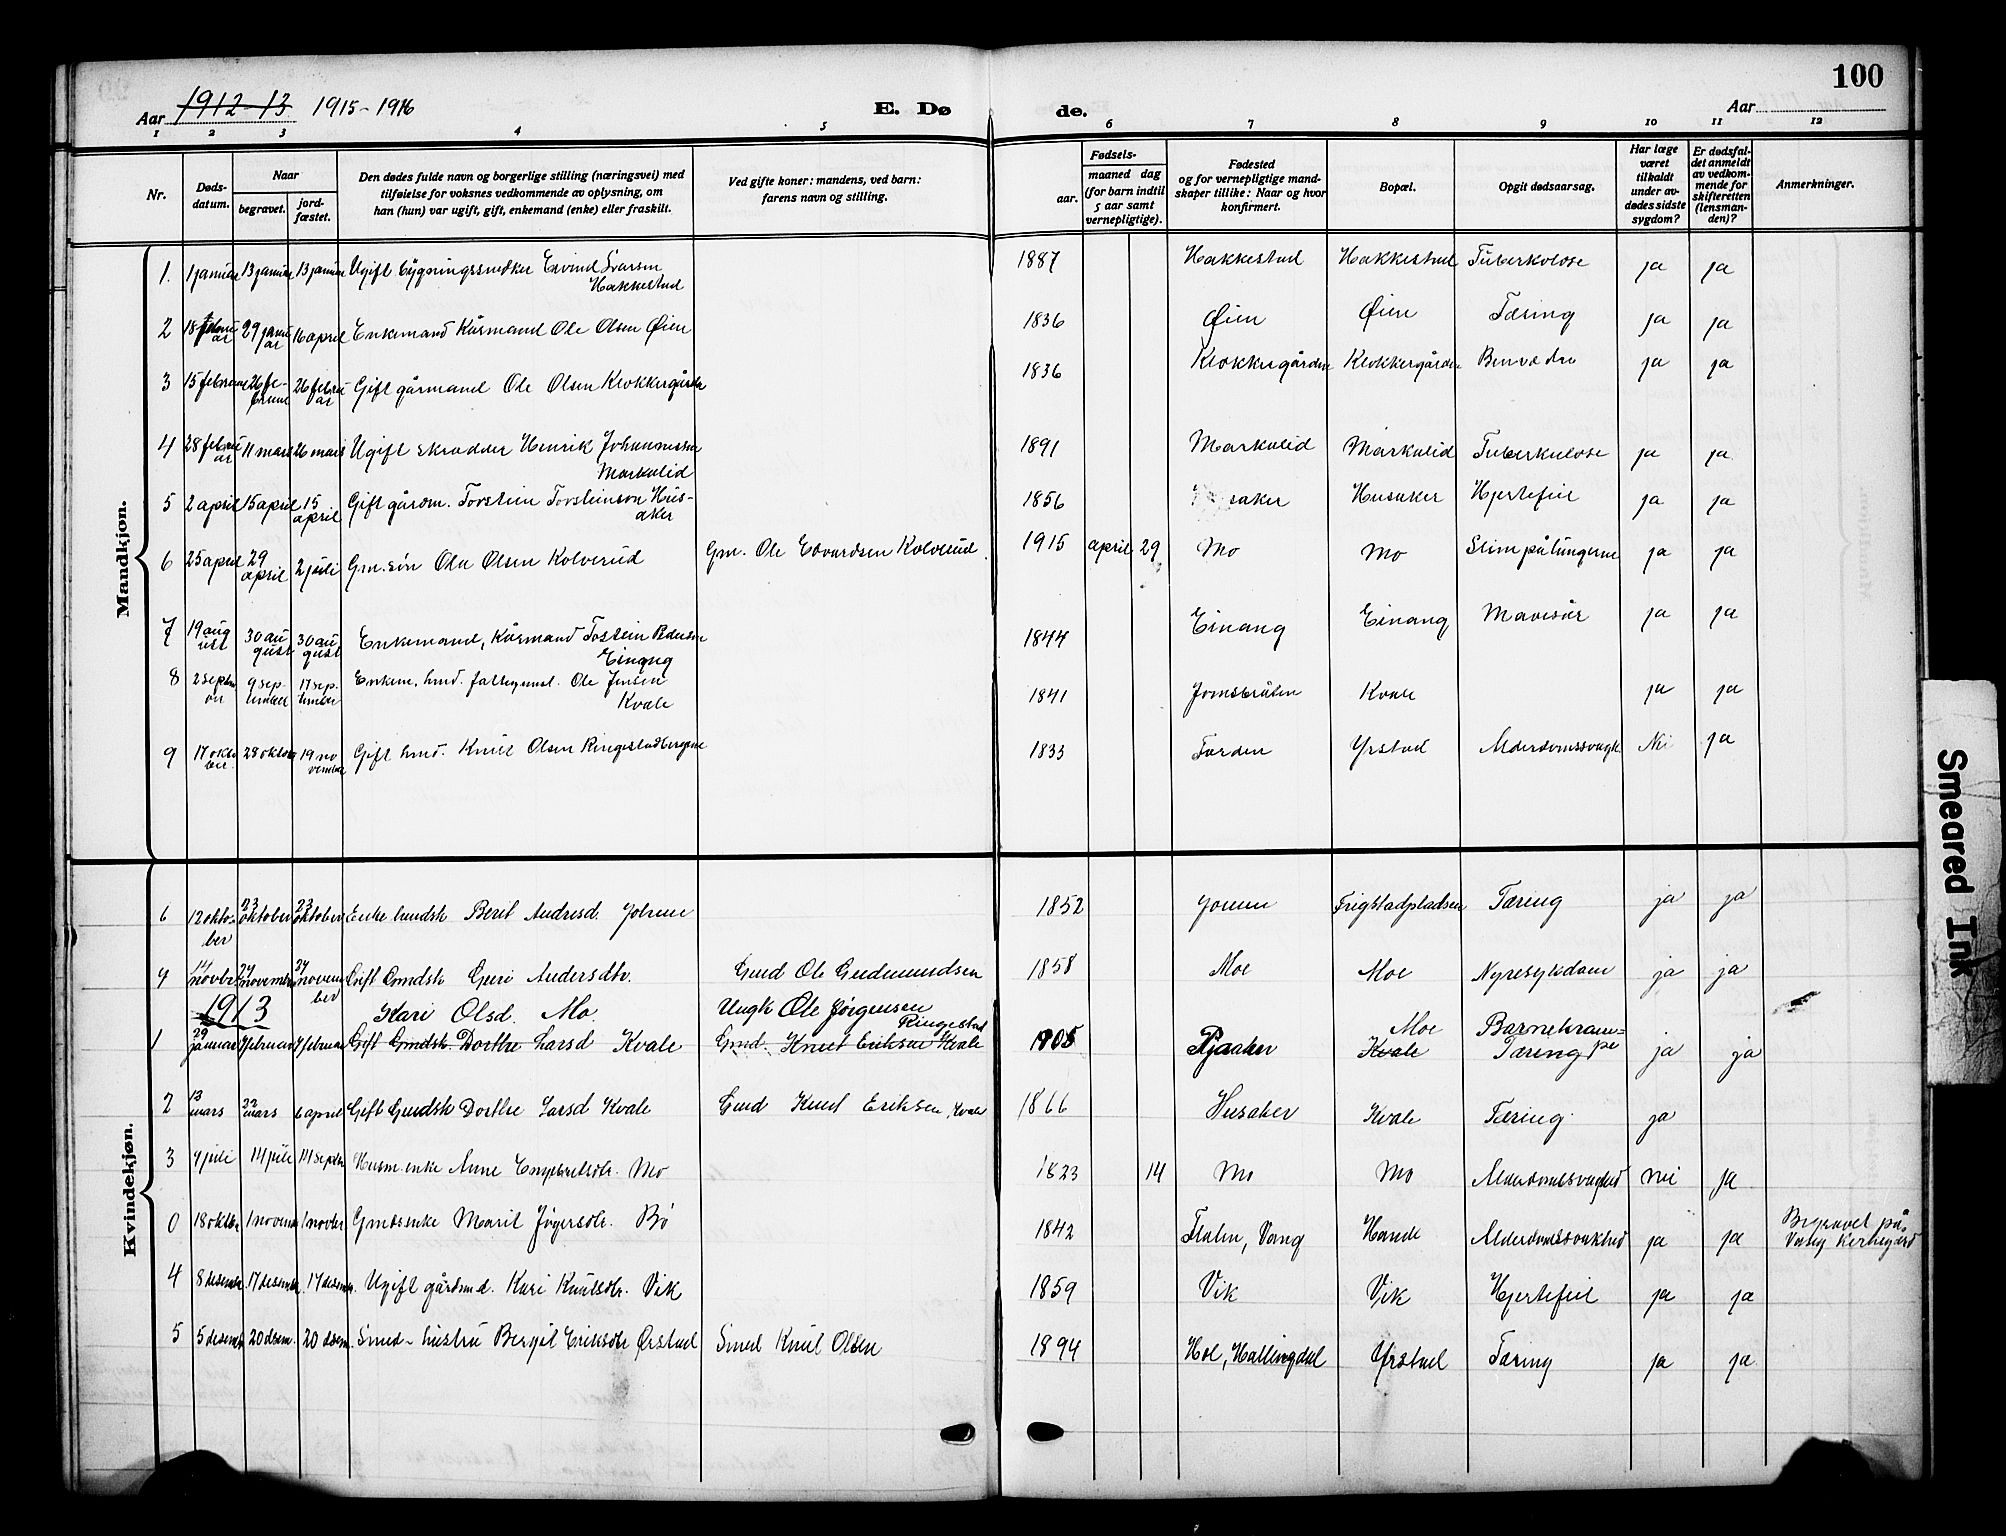 100
Aar 1912-13 1915-1916
E. Dø de.
Aar
1 2 3 4 5 6 7 8 9 10 11 12
Nr.
Døds-
datum.
Naar
begravet.
jord-
fæstet.
Den dødes fulde navn og borgerlige stilling (næringsvei) med
tilføielse for voksnes vedkommende av oplysning, om
han (hun) var ugift, gift, enkemand (enke) eller fraskilt.
Ved gifte koner: mandens, ved barn:
farens navn og stilling.
Fødsels-
aar.
maaned dag
(for barn indtil
5 aar samt
vernepligtige).
Fødested
og for vernepligtige mand-
skaper tillike: Naar og hvor
konfirmert.
Bopæl.
Opgit dødsaarsag.
Har læge
været
tilkaldt
under av-
dødes sidste
sygdom?
Er dødsfal-
det anmeldt
av vedkom-
mende for
skifteretten
(lensman-
den)?
Anmerkninger.
Mandkjøn.
1. 1 januar 13 januar 13 januar Ugift bygningssnedker Eivind Ivarsen 1887 Hakkestad Hakkestad Tuberkulose ja ja
Hakkestad
2 18 29 januar 16 april Enkemand Kårmand Ole Olsen Øien 1836 Øien Øien Tæring ja ja
3 15 februar 26 februar 26 februar Gift gårmand Ole Olsen Klokkergården 1836 Klokkergården Klokkergården ja ja
4 28 februar 11 mars 26 mars Ugift skrædder Henrik Johannessen 1891 Markalid Markalid Tuberkulose ja ja
Markalid
5 2 april 15 april 15 april Gift gårdm. Torstein Torsteinson Hus- 1856 saker Husaker Hjertefeil ja ja
aker
6 25 april 29 april 2 juli Gm. søn Ola Olsen Kolverud Gm. Ole Edvardsen Kolverud 1915 april 29 Mo Mo Slim på lungerne ja ja
7 19 august 30 august 30 august Enkemand, Kårmand Tostein Pedersen 1844 Einang Einang Mavesår ja ja
Einang
8 2 9 september 17 september Enkem. hmd. Ole Jensen 1841 Jomsbråten Kvale ja ja
Kvale
9 17 oktober 28 oktober 19 november Gift hmd. Knut Olsen Ringestadbergene 1833 Forden Yrstad Alderdomssvagh Nei ja
Kvindekjøn.
6 12 oktober 23 oktober 23 oktober Enke husdsk Berit Andresd. 1852 Frigstadpladsen Tæring ja ja
9 14 novbr 24 november 24 november Gift Gmdsk Guri Andersdtr. Gmd Ole Gudmundsen 1858 Moe Moe Nyresykdom ja ja
1913 Kari Olsd. Mo. Ungk Ole Jørgensen Moe Barnekram-
Ringestad
1 29 januar 7 februar 7 februar Gift Gmdsk Dorthe Larsd Kvale Gmd Knut Eriksen Kvale 1905 Kvale Tæring pe ja ja
2 13 mars 22 mars 6 april Gift Gmdsk Dorthe Larsd Kvale Gmd Knud Eriksen, Kvale 1866 Husaker Kvale Tæring. ja
3 9 juli 14 juli 14 septbr Husm. enke Anne Engebretsdtr. Mo 1823 14 Mo Mo Alderdomssvaghed nei ja
0 18 oktbr 1 novemb 1 novbr Gmdsenke Marit Jøgersdtr. Bø 1842 Vang Hande Alderdomssvakhed ja ja Begravet på
kirkegård
4 8 desembr 17 desembr. 17 desembr. Ugift gårdmd. Kari Knutsdtr. Vik 1859 Vik Vik Hjertefeil ja ja
5 5 desembr 20 dsem. 20 dsem. Smed-hustru Bergit Eriksdtr Ørstad Smed Knut Olsen 1894 Hol, Hallingdal Ørstad Tæring ja ja
Smeared Ink